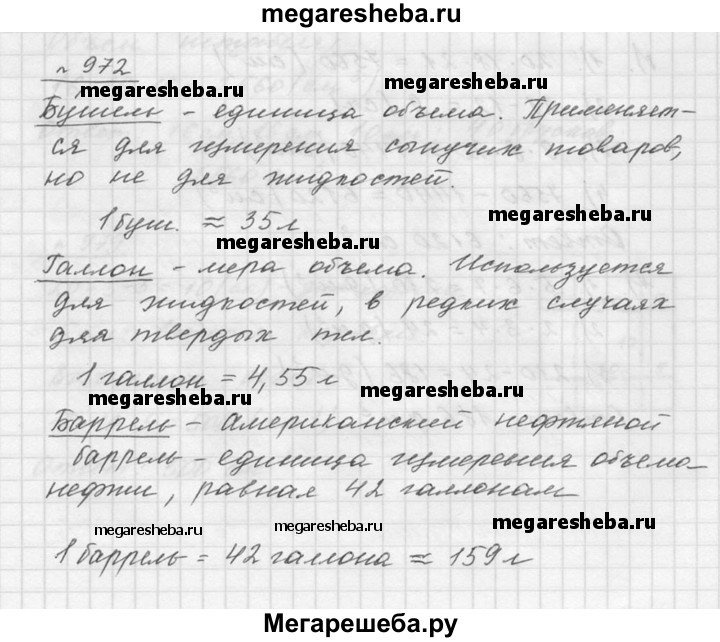 megaresheba.ru
№ 972
megaresheba.ru megaresheba.ru
Бушель - единица объема. Применяет-
ся для измерения сыпучих товаров,
но не для жидкостей.
1 буш. ≈ 35 л
megaresheba.ru megaresheba.ru
Галлон - мера объема. Используется
для жидкостей, в редких случаях
для твердых тел.
1 галлон = 4,55 л
megaresheba.ru megaresheba.ru
Баррель - Американский нефтяной
баррель - единица измерения объема
нефти, равная 42 галлонам
megaresheba.ru megaresheba.ru megaresheba.ru
1 баррель = 42 галлона ≈ 159 л
Мегарешеба.ру